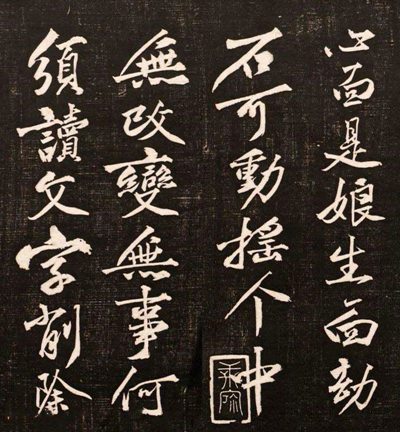 心面是娘生面劫
石可動搖个中
無改變無事何
須讀文字削除